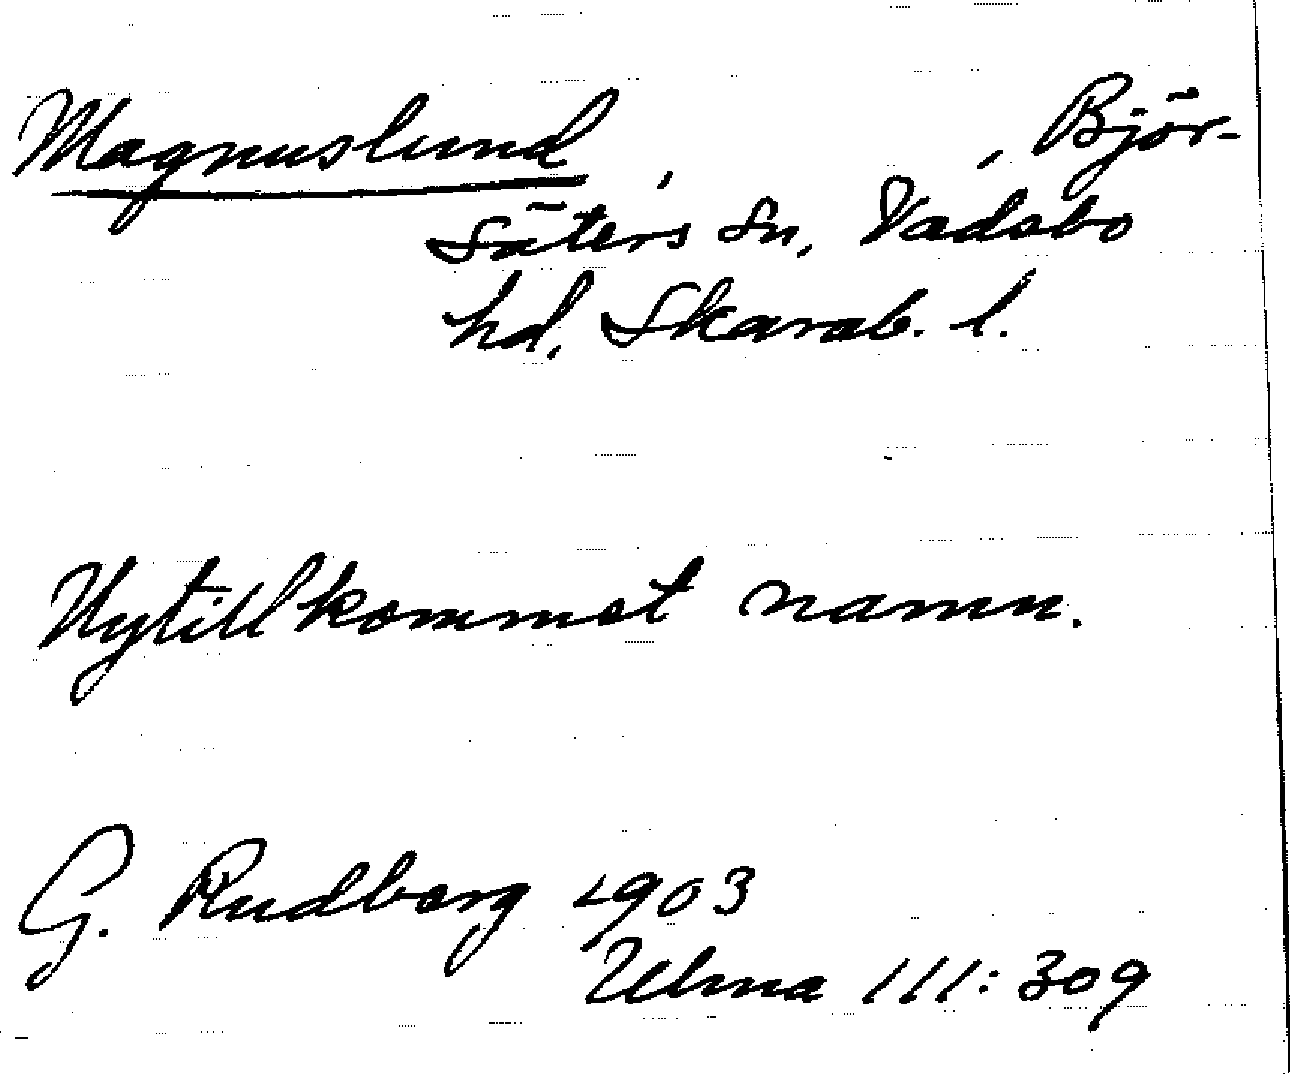 Magnuslund, , Björ-
säters sn, Vadsbo
hd, Skarab. l.
Nytillkommet namn.
G. Rudberg 1903
Ulma 111:309